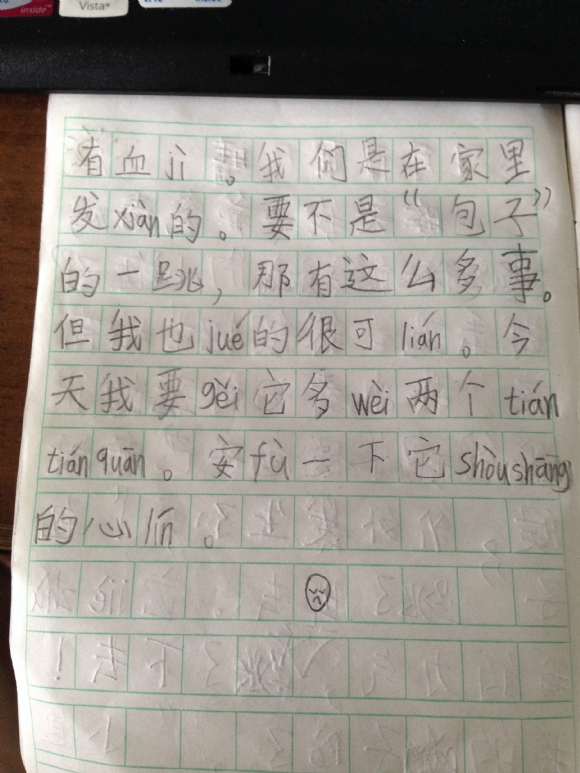 inside™
Vista®
有血jì。我们是在家里
发xiàn的。要不是“包子”
的一跳，那有这么多事。
但我也jué的很可lián。今
天我要gěi它多wèi两个tián
tián quān。安fù一下它shòushāng
的心lín。